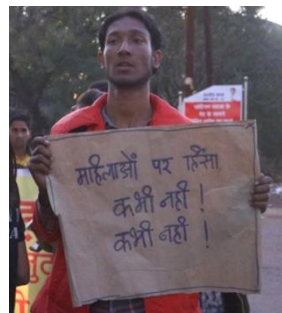 महिलाओं पर हिंसा
कभी नहीं !
कभी नहीं !